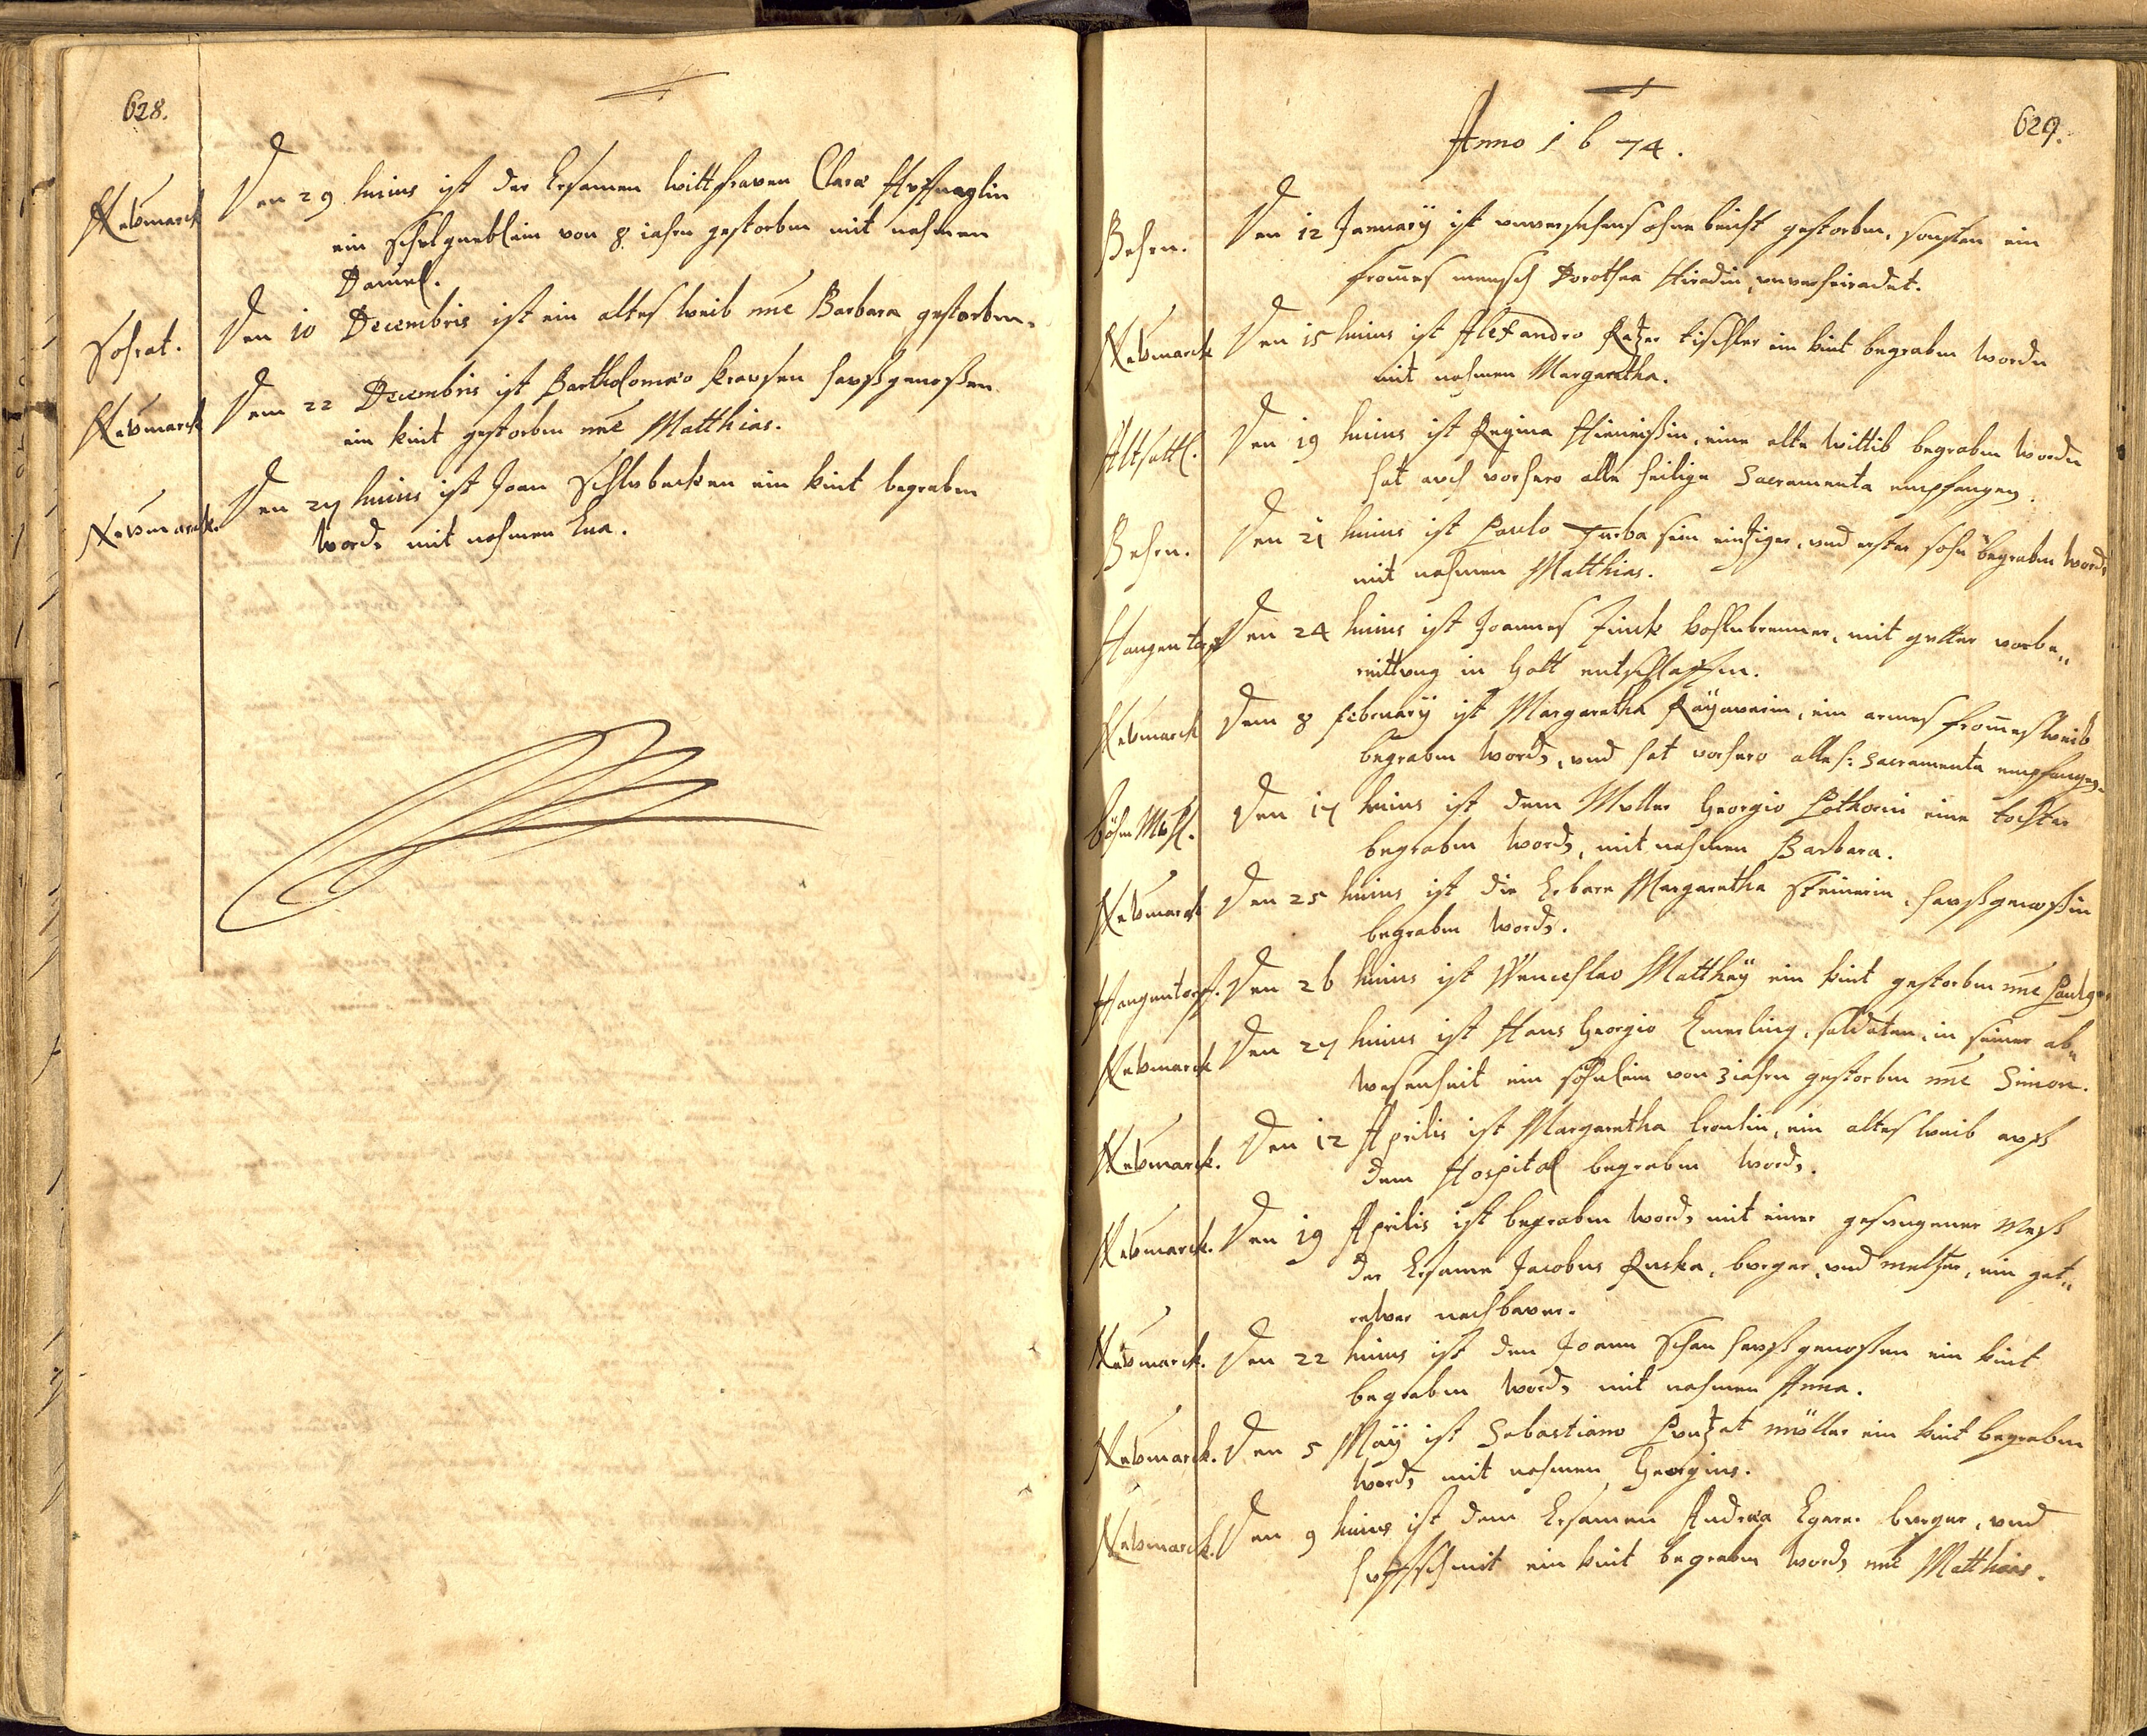 628.
Newmarck Den 29 huius ist der Ersamen wittfrawen Claræ Huffnaglin
ein schulgneblein von 8 iahrn gestorben mit nahmen
Daniel.
Sohrat. Den 10 Decembris ist ein altes weib nñe Barbara gestorben.
Newmarck Dem 22 Decembris ist Bartholomæo Krausen haußgenoßen
ein kint gestorben nñe Matthias.
Newmarck. Den 27 huius ist Joan Schlubecken ein kint begraben
word. mit nahmen Eua.
629.
Anno 1674.
Behrn. Den 12 January ist unversehens ohne beicht gestorben, sonsten ein
from̃es mensch Dorothea Hiradin, unverheiradet.
Newmarck Den 15 huius ist Alexandro Ratzer tischler ein kint begraben worden
mit nahmen Margaretha.
Altsattl. Den 19 huius ist Regina, eine alte wittib begraben worden
hat auch vorhero alle heilige Sacramenta empfangen.
Behrn. Den 21 huius ist Paulo Turba sein eintziger, und erster sohn begraben word.
mit nahmen Matthias.
Hangentorf Den 24 huius ist Joannes Finck kohlnbrenner, mit gutter vorbe„
reittung in Gott entschlaffen.
Newmarck Dem 8 february ist Margaretha, ein armes from̃es weib
begraben word, und hat vorhero alle h: Sacramenta empfangen.
böhm Mühl. Den 17 huius ist dem Muller Georgio Pothorni eine tochter
begraben word, mit nahmen Barbara.
Newmarck Den 25 huius ist die Erbare Margaretha Steinerin, haußgenoßin
begraben word.
Hangentorff. Den 26 huius ist Wenceslao Matthäy ein kint gestorben nñe
Newmarck Den 27 huius ist Hans Georgio Emerling, soldaten, in seiner ab„
wesenheit ein söhnlein von 3 iahrn gestorben nñe Simon.
Newmarck. Den 12 Aprilis ist Margaretha, ein altes weib auß
dem Hospital begraben word.
Newmarck. Den 19 Aprilis ist begraben word, mit einer gesungener Meß
der Ersame Jacobus Ruska, burger, und meltzer, ein get„
rewer nachbauer.
Newmarck. Den 22 huius ist den Joann Schan haußgenoßen ein kint
begraben word, mit nahmen Anna.
Newmarck. Den 5 May ist Sebastiano müller ein kint begraben
word, mit nahmen Georgius.
Newmarck. Den 9 huius ist dem Ersamen Andrea Egerer burger, und
huffschmit ein kint begraben word, nñe Matthias.